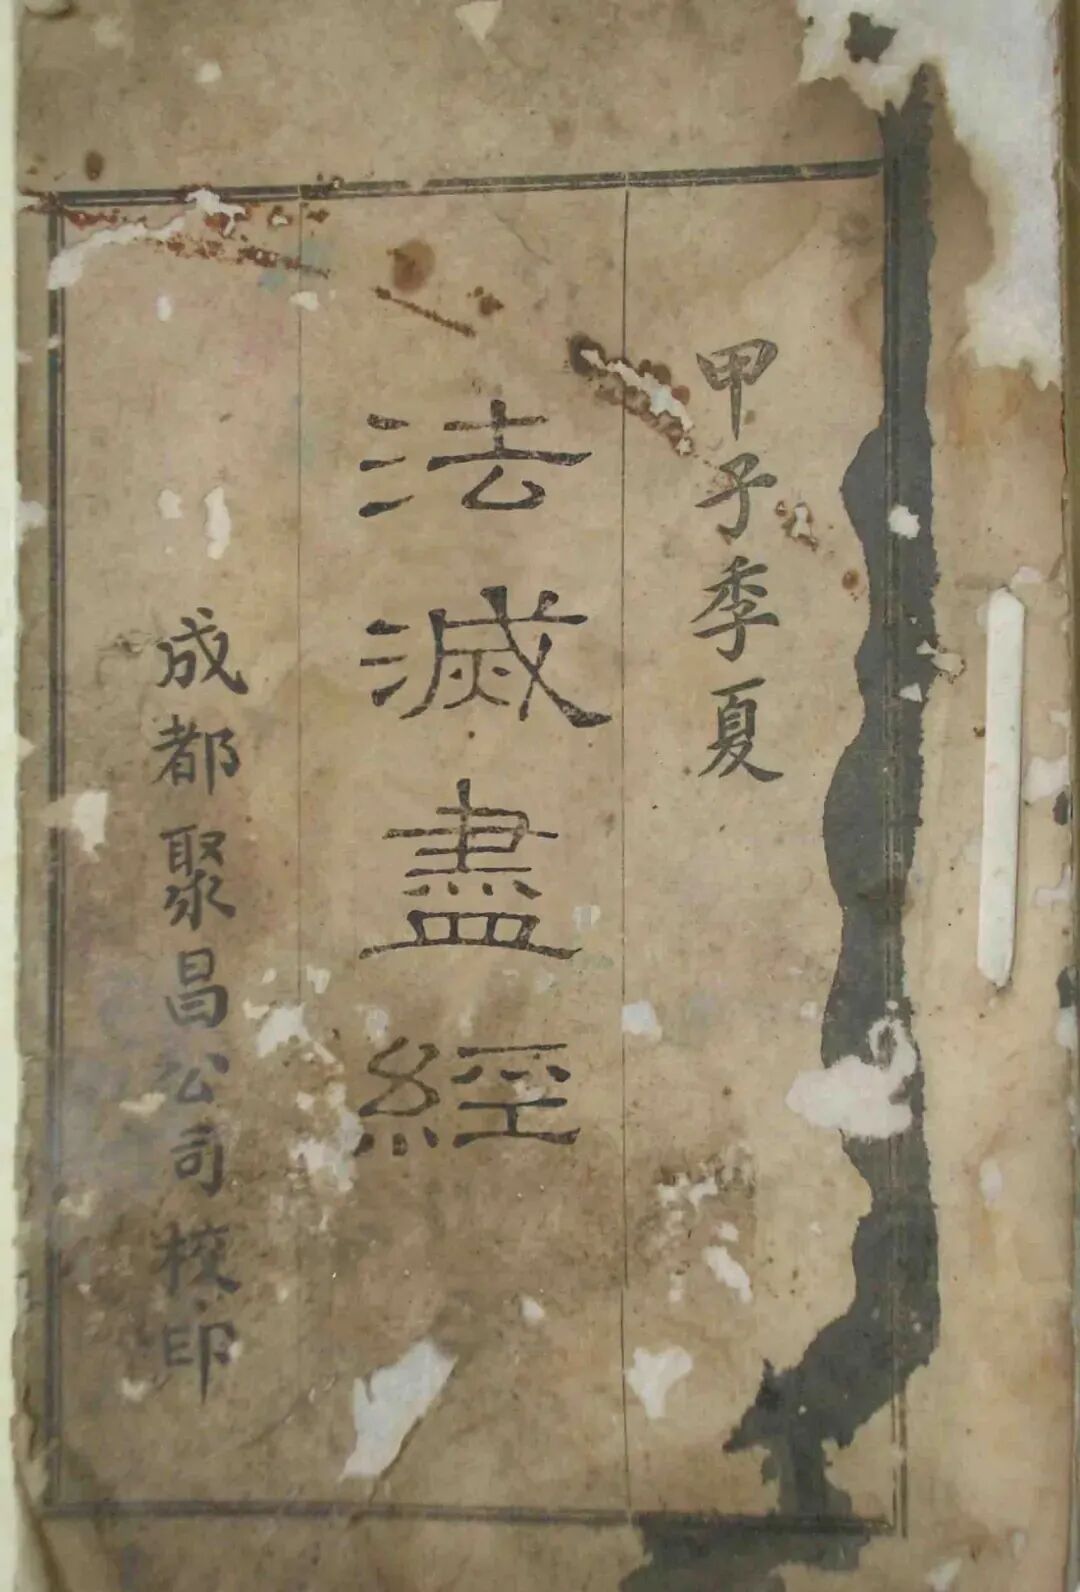 甲子季夏
法滅盡經
成都聚昌公司校印